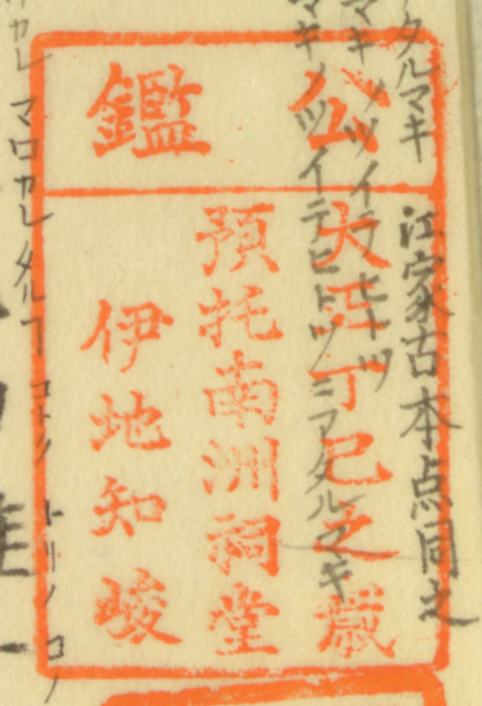 公鑑
大正丁巳之歳
預托南洲祠堂
伊地知峻
タルマキ 江家古本点同之
マキノツイテヒトツ
マキノツイテヒトツニアタルマキ
カレマロカレタルコト